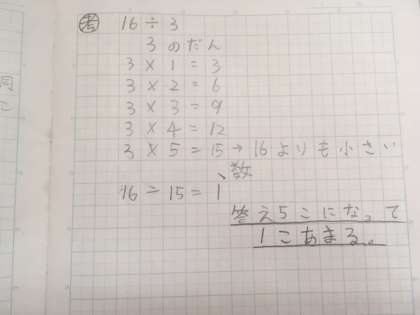 考 16÷3
3のだん
3×1=3
3×2=6
3×3=9
3×4=12
3×5=15→16よりも小さい
数
16-15=1
答え5こになって
1こあまる。